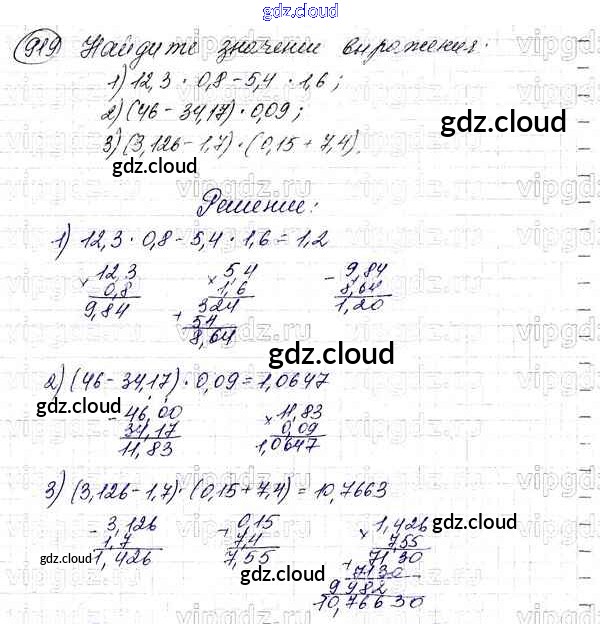 gdz.cloud
919 Найдите значении выражения:
1) 12,3 · 0,8 - 5,4 · 1,6;
2) (46 - 34,17) · 0,09;
gdz.cloud
3) (3,126 - 1,7) · (0,15 + 7,4).
gdz.cloud
vipgdz.ru
Решение:
1) 12,3 · 0,8 - 5,4 · 1,6 = 1,2
× 12,3 × 5,4 - 9,84
0,8 1,6 8,64
9,84 324 1,20
+ 54
8,64
gdz.cloud
2) (46 - 34,17) · 0,09 = 1,0647
gdz.cloud
- 46,00 × 11,83
34,17 0,09
11,83 1,0647
gdz.cloud
3) (3,126 - 1,7) · (0,15 + 7,4) = 10,7663
- 3,126 + 0,15 × 1,426
1,7 7,4 7,55
1,426 7,55 + 7130
gdz.cloud gdz.cloud
+ 7130
9982
10,76630
gdz.cloud